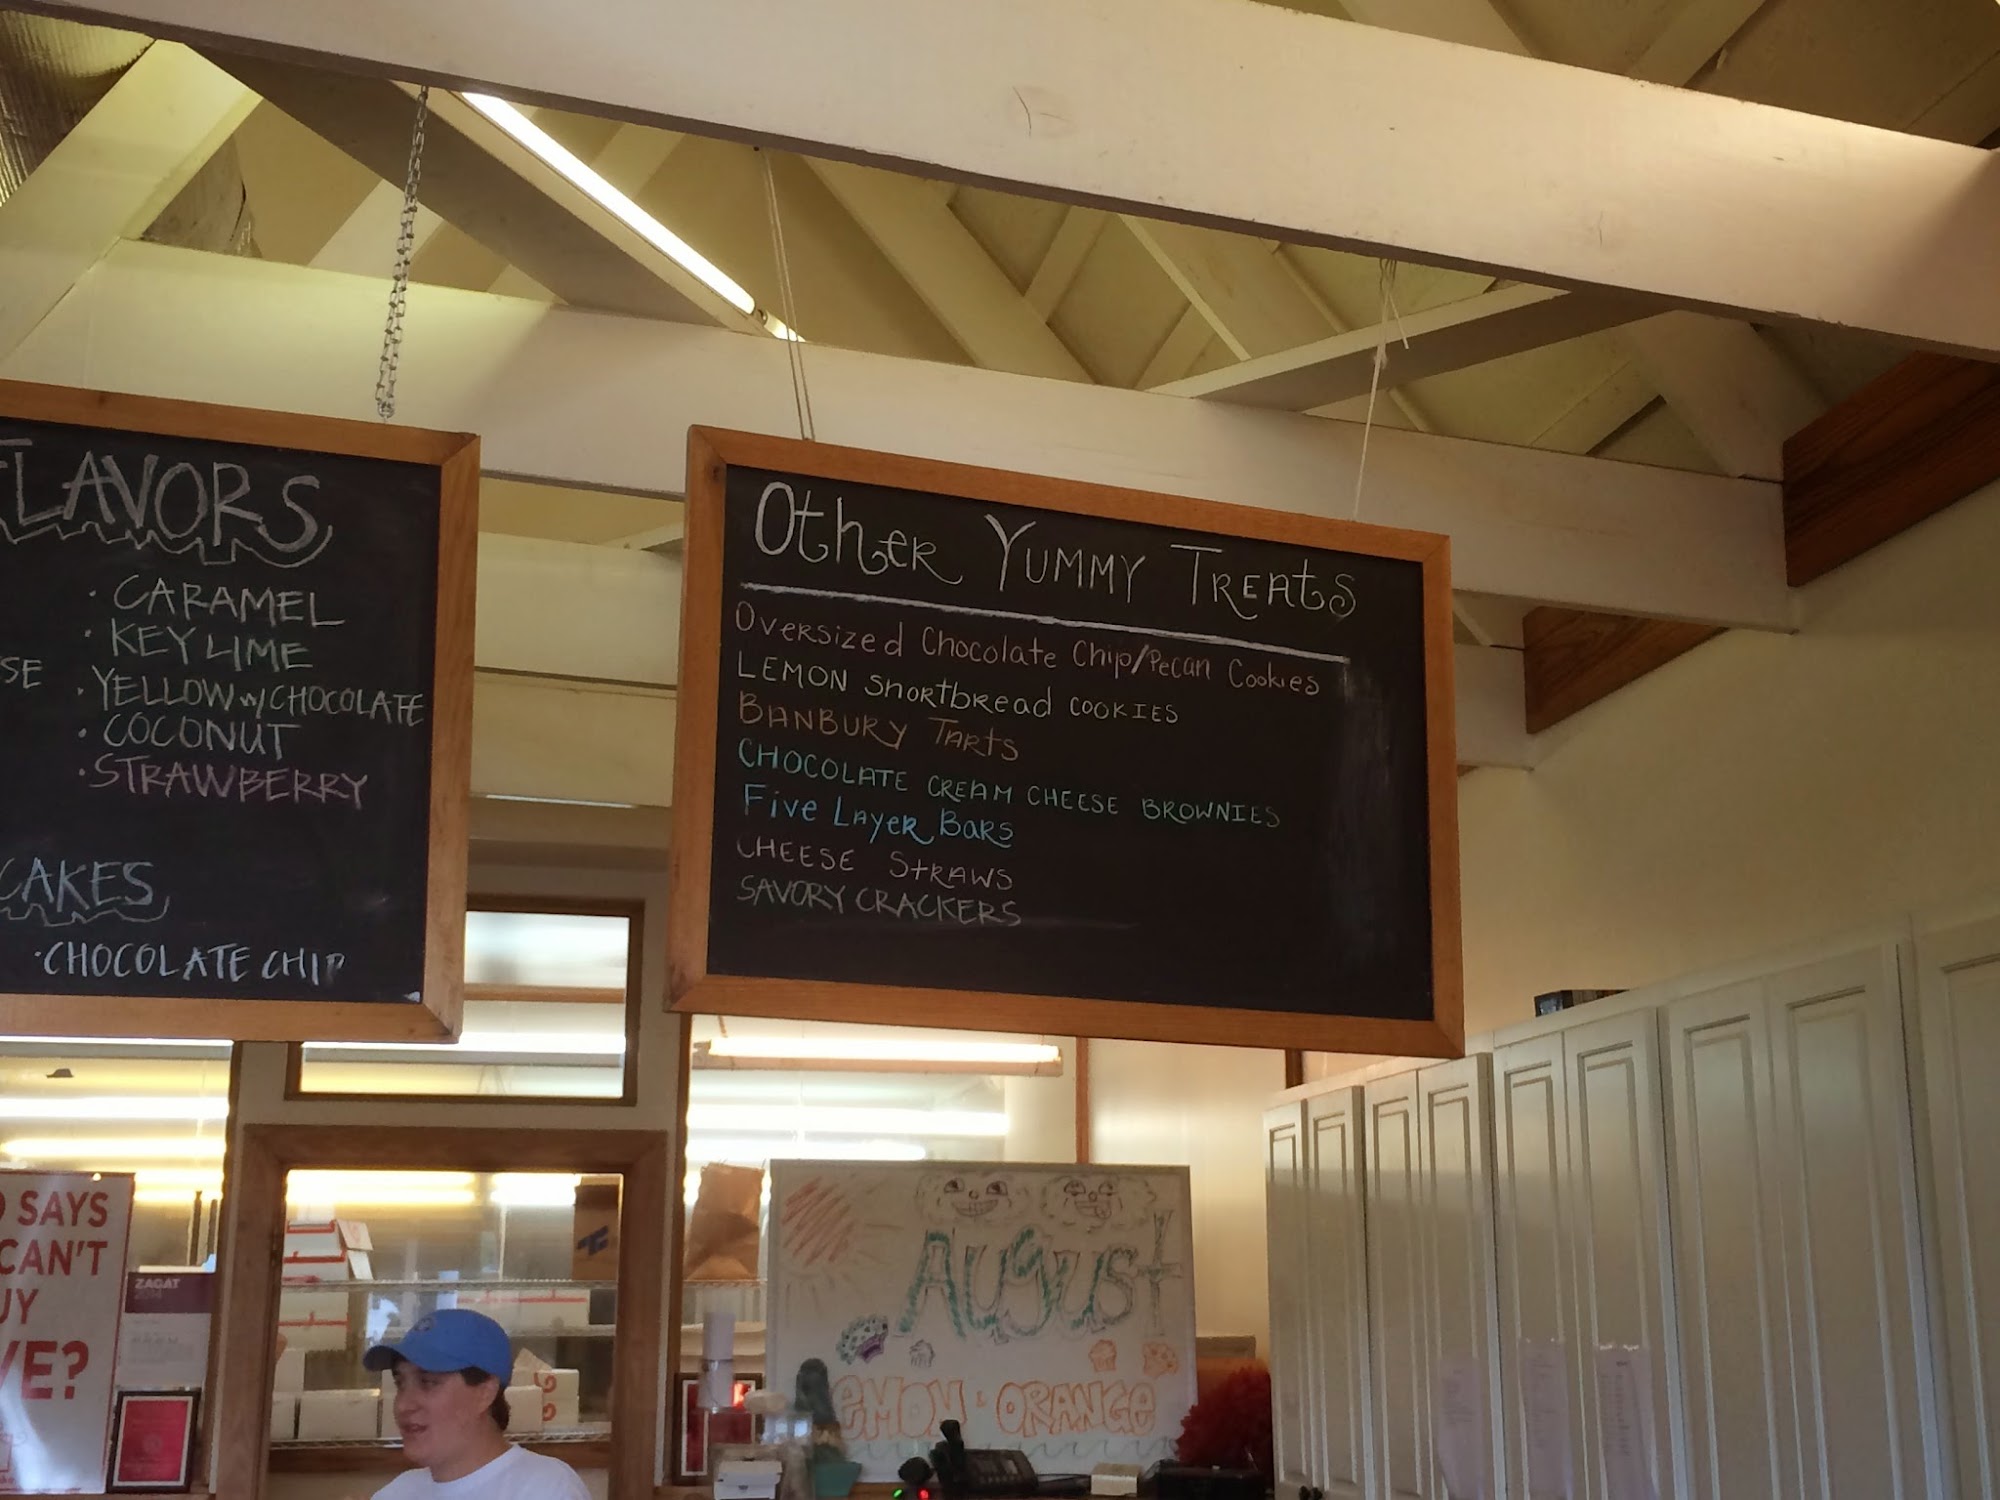 FLAVORS
· CARAMEL
· KEY LIME
· YELLOW w/ CHOCOLATE
· COCONUT
· STRAWBERRY
CAKES
· CHOCOLATE CHIP
Other Yummy Treats
Oversized Chocolate Chip/Pecan Cookies
LEMON Shortbread COOKIES
BANBURY TARTS
CHOCOLATE CREAM CHEESE BROWNIES
Five Layer Bars
CHEESE STRAWS
SAVORY CRACKERS
SAYS
CAN'T
ZAGAT
AUGUST
LEMON & ORANGE